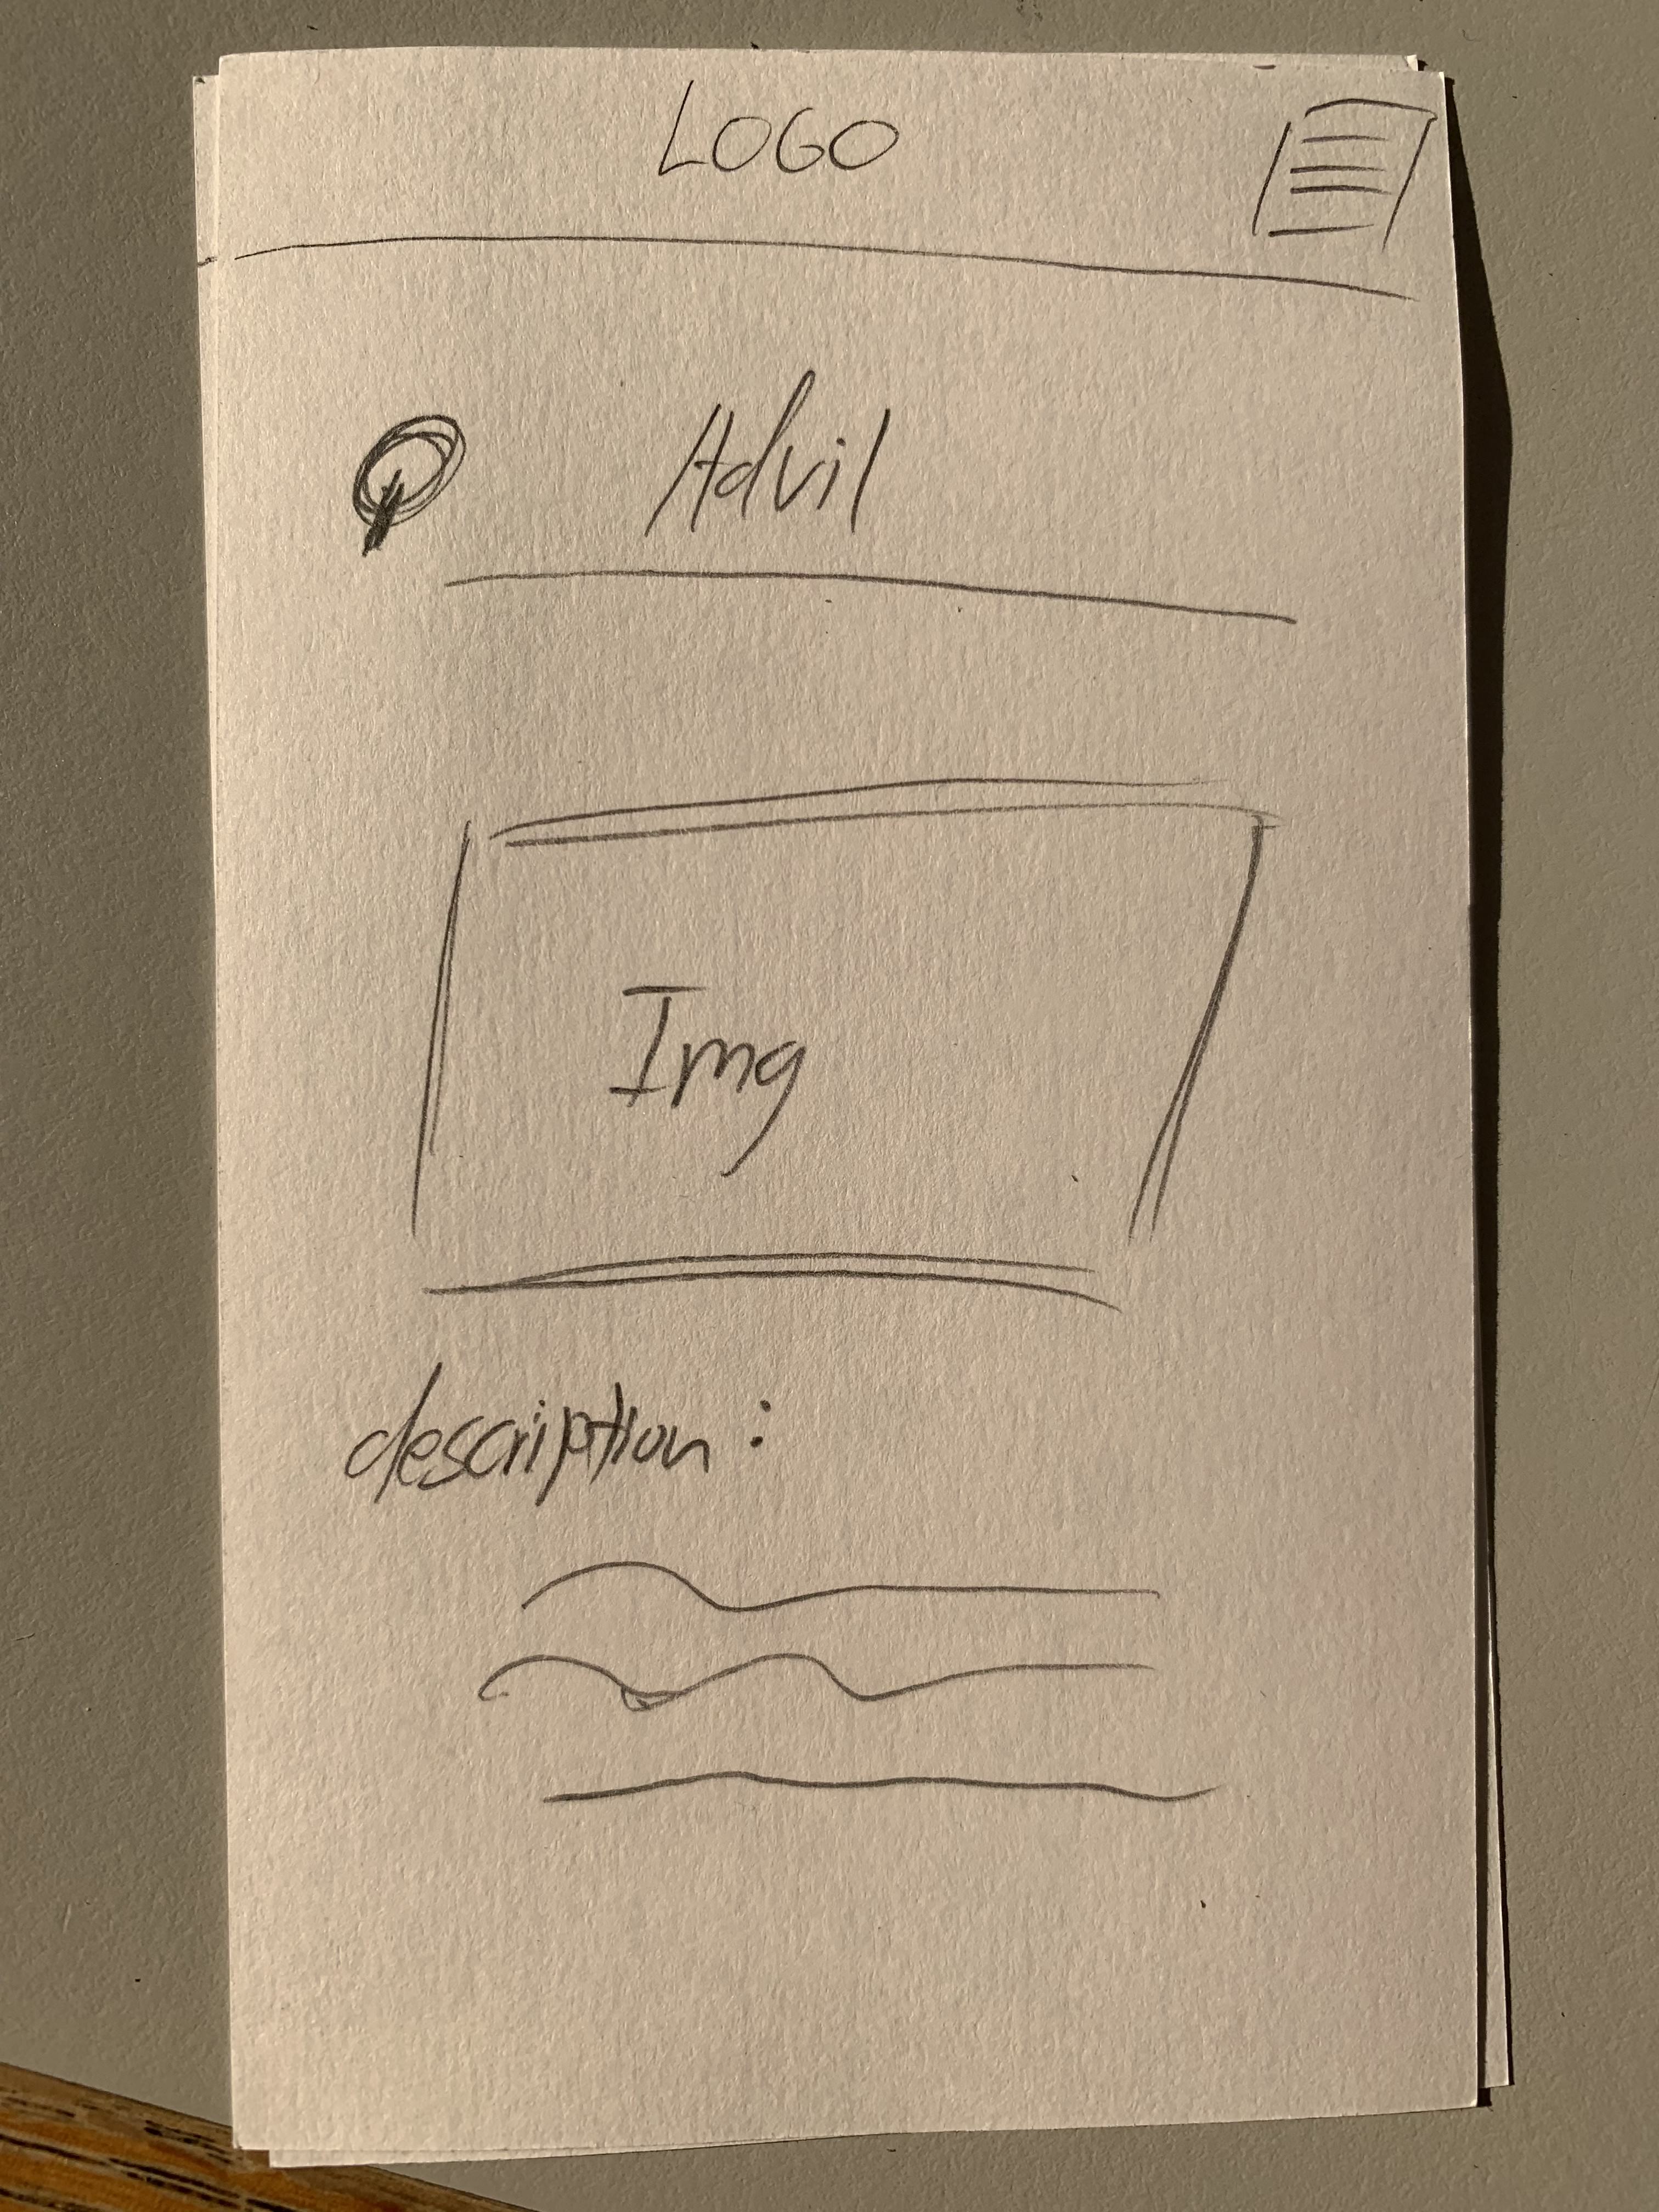 LOGO
Advil
Img
description: